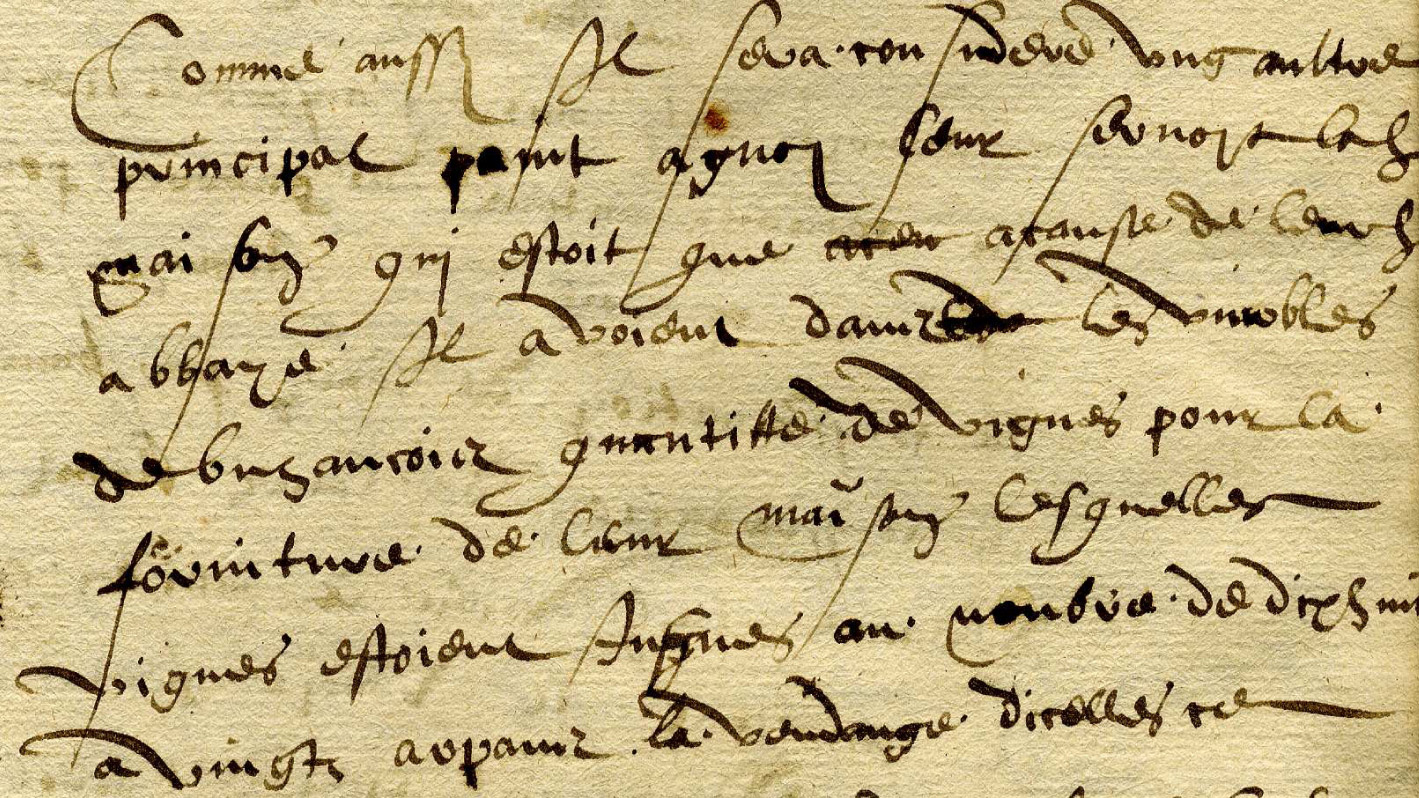 Comme aussy Il sera considere ung aultre
principal point a quoy leur servoit lad
maison qui estoit que a cause de leurd
abbaye Il avoient dans les vinobles
de buzancois quantitte de vignes pour la
forniture de leur maison lesquelles
vignes estoient Jusques au nombre de dixhuit
a vingtz arpans la vendange dicelles ce